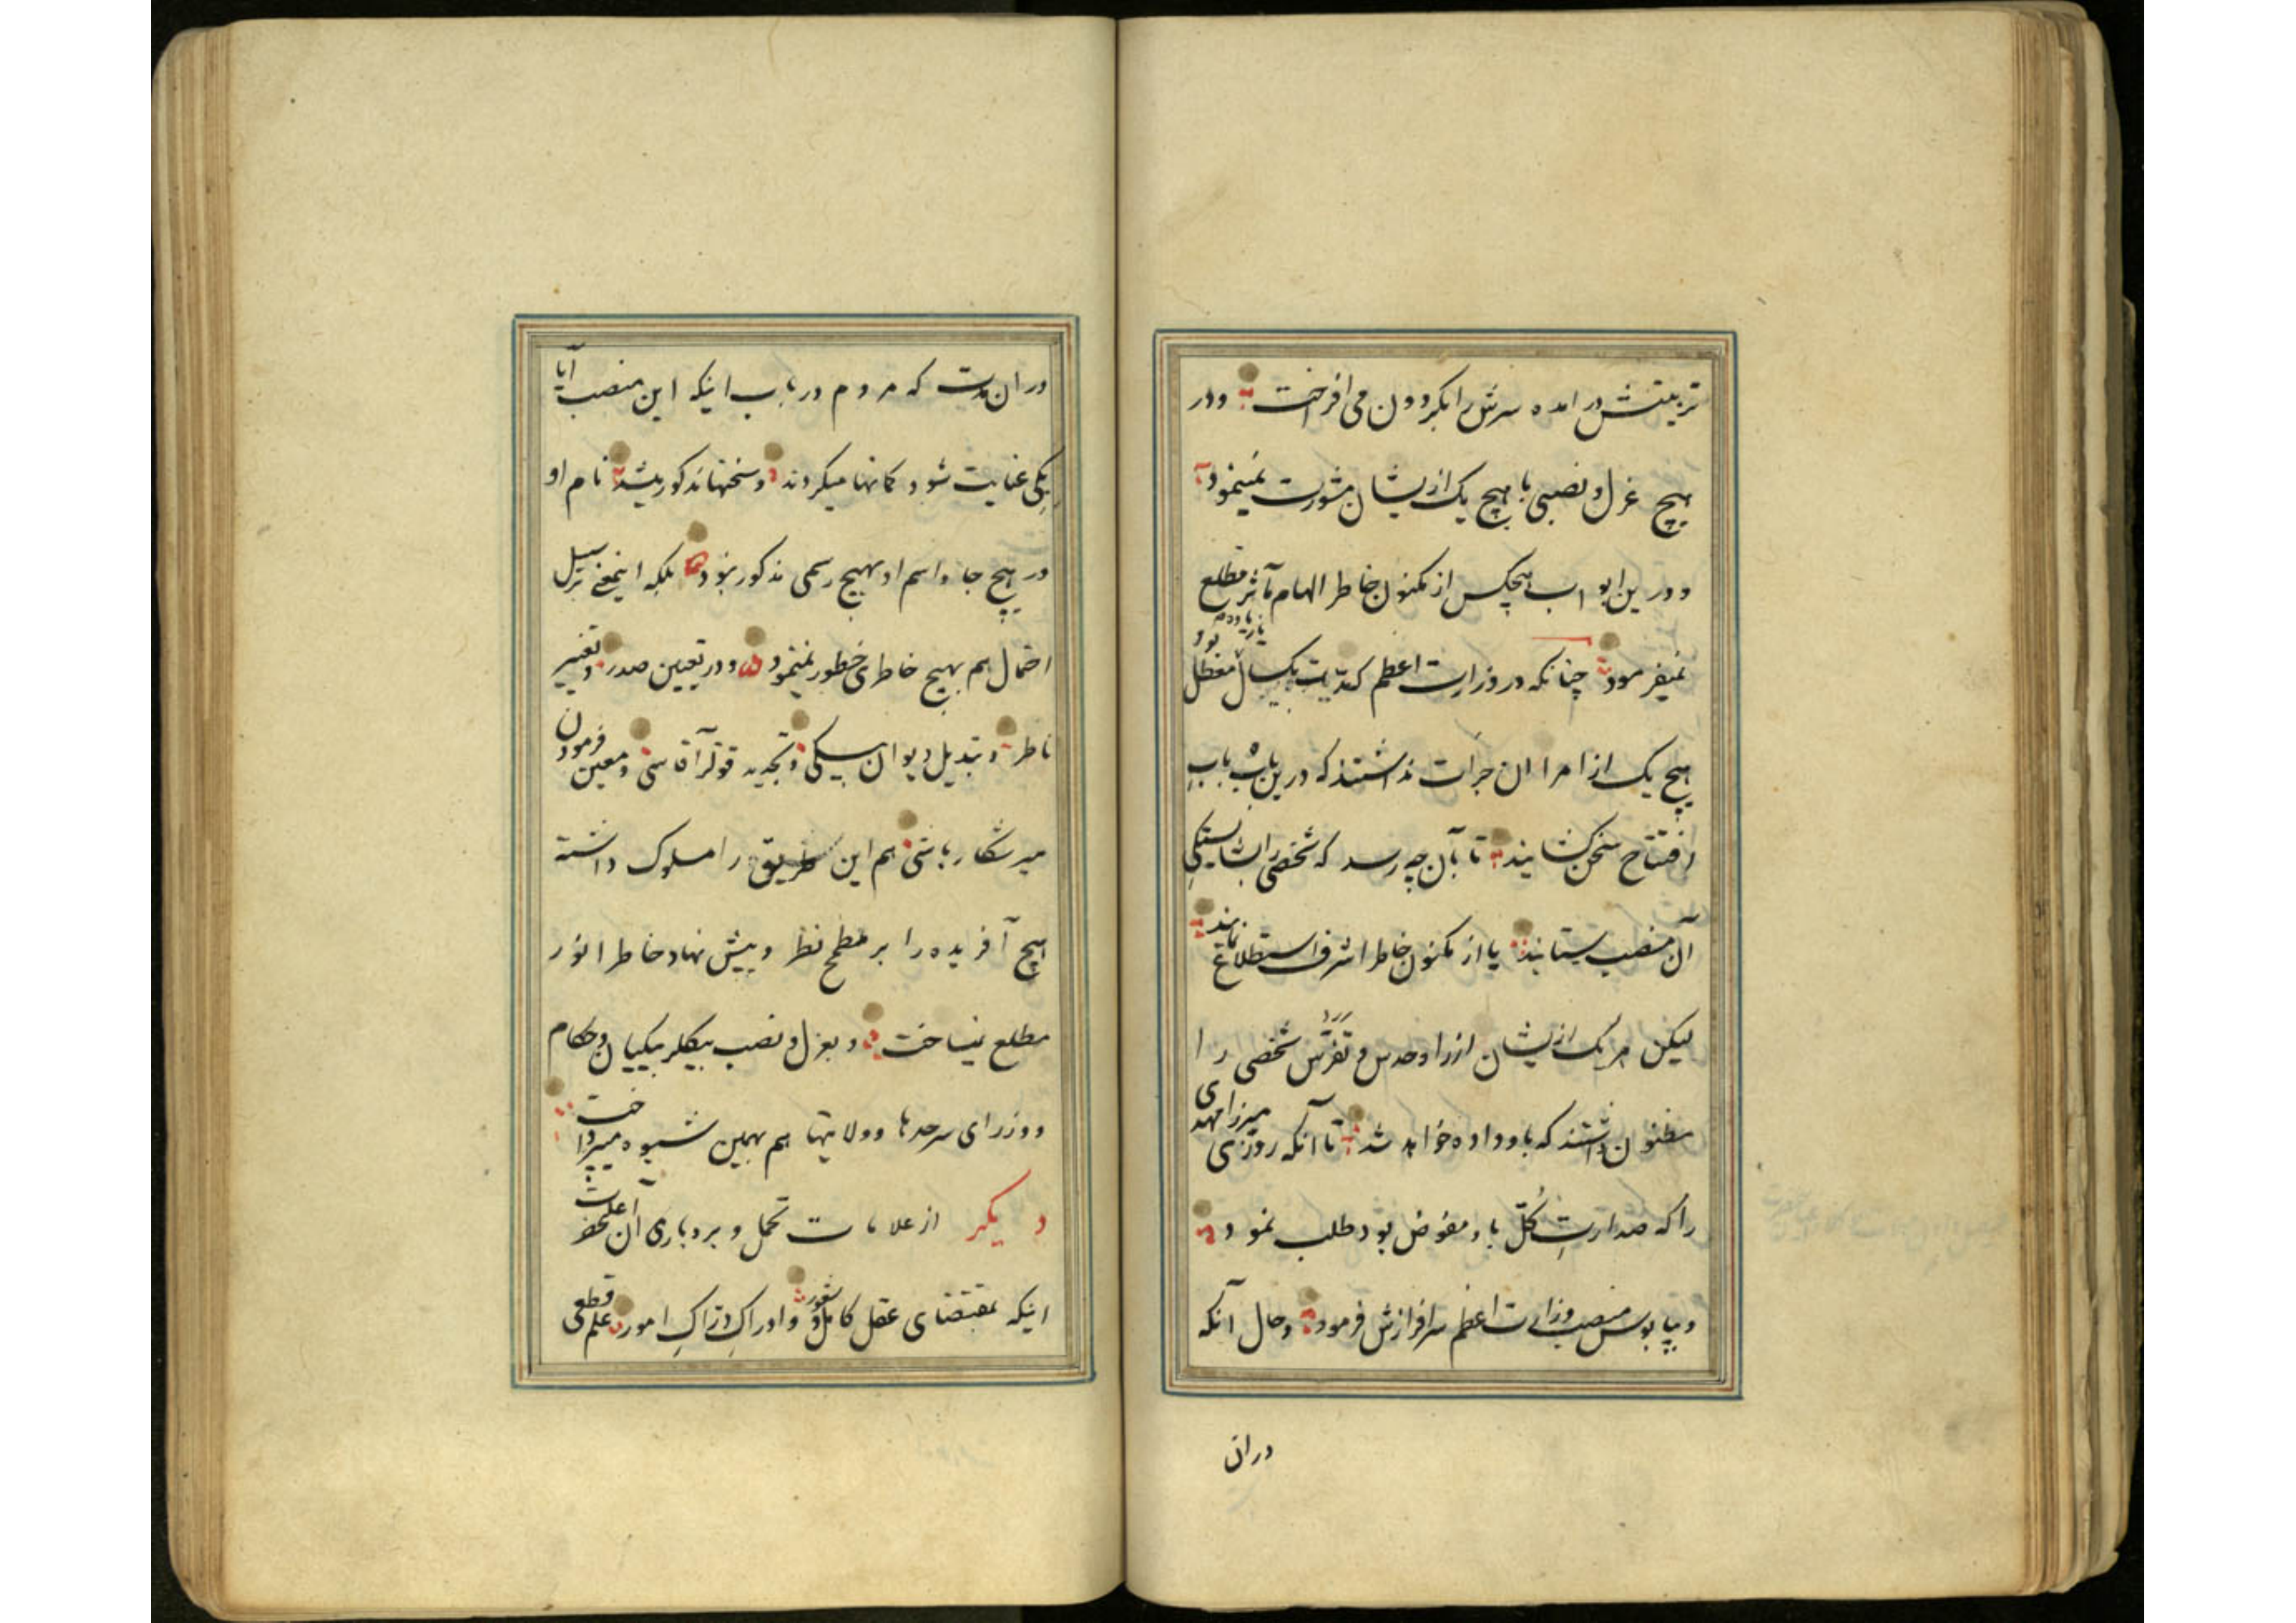 تربیتش در امده سرش را بکردون می افراخت و در
هیچ عزل و نصبی با هیچ یک از ایشان مشورت نمینمود
و درین ابواب هیچکس از مکنون خاطر الهام مآثر مطلع
نمیفرمود چنانکه در وزارت اعظم که مدت یکسال معطل بود
هیچ یک از امرا ان جرات نداشتند که درین باب باب
افتتاح سخن کشایند تا بآن چه رسد که شخصی را بشایستکی
آن منصب بستایند یا از مکنون خاطر اشرف استطلاع نمایند
لیکن هر یک از ایشان از راه حدس و تفرس شخصی را
مظنون داشتند که باو داده خواهد شد تا آنکه روزی میرزا مهدی
را که صدارت کل باو مفوض بود طلب نمود
و بپابوس منصب وزارت اعظم سرافرازش فرمود و حال آنکه
دران
دران مدت که مردم در باب اینکه این منصب آیا
بکی عنایت شود کمانها میکردند و سخنها مذکور میشد نام او
در هیچ جا و اسم او بهیچ رسمی مذکور نبود بلکه اینمعنی بر سبیل
احتمال هم بهیچ خاطری خطور نمینمود و در تعیین صدر و تغییر
ناظر و تبدیل دیوان بیکی و تجدید قوللر آقاسی و معین فرمودن
میر شکار باشی هم این طریق را مسلوک داشته
هیچ آفریده را بر مطمح نظر و پیش نهاد خاطر انور
مطلع نمیساخت و بعزل و نصب بیکلربیکیان و حکام
و وزرای سرحدها و ولایتها هم بهمین شیوه میپرداخت
دیکر از علامات تحمل و بردباری آن اعلیحضرت
اینکه بمقتضای عقل کامل و شعور و ادراک دراک امور علم قطعی